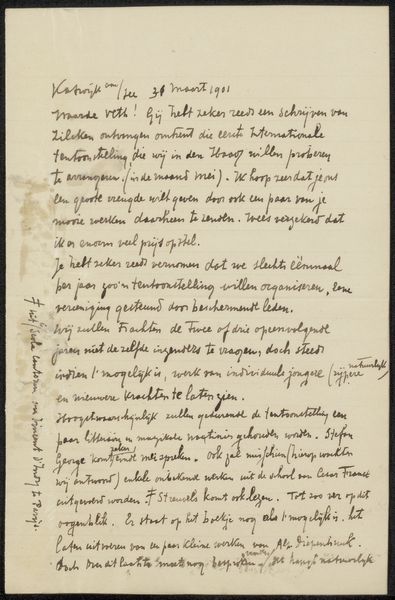 Katwijk am/zee 31 Maart 1901
Waarde Veth! Gij hebt zeker reeds een schrijven van
Zilcken ontvangen omtrent die eerste Internationale
tentoonstelling, die wij in den Haag willen probeeren
te arrangeeren. (in de maand mei). Ik hoop zeer dat je ons
een groote vreugde wilt geven door ook een paar van je
mooie werken daarheen te zenden. Wees verzekerd dat
ik er enorm veel prijs op stel.
Je hebt zeker reeds vernomen dat we slechts éénmaal
per jaar zoo'n tentoonstelling willen organiseren, Eene
vereeniging gesteund door beschermende leden.
Wij zullen trachten de twee of drie opeenvolgende
jaren niet de zelfde inzenders te vragen, doch steeds
indien 't mogelijk is, werk van individueele jongere (rijpere natuurlijk)
en nieuwere krachten te laten zien.
Hoogstwaarschijnlijk zullen gedurende de tentoonstelling een
paar litteraire en muzikale matinées gehouden worden. Stefan
George komt zeker en zal mei spreken. Ook zal misschien (hierop wachten
wij antwoord) enkele onbekende werken uit de school van Cesar Franck
uitgevoerd worden. Ƒ Streuvels komt ook lezen. Tot zoo ver op dit
oogenblik. Er staat op het boekje nog als 't mogelijk is. het
laten uitvoeren van een paar kleine werken van Alp. Diepenbrock.
Doch dan dit laatste moet nog besproken worden, dit hangt natuurlijk
Ƒ uit/ Schola cantorum van Vincent d'Indy te Parijs.